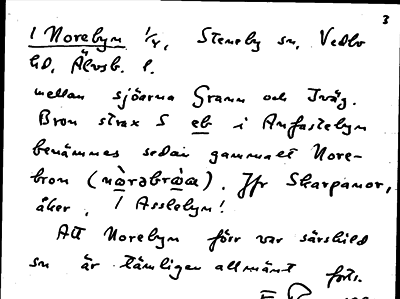 3
1 Norebyn 1/4, Steneby sn, Vedbo
hd, Älvsb. l.
mellan sjöarna Grann och Iväg.
Bron strax S eb i Anfastebyn
benämnes sedan gammalt Nore-
bron (nɷ̀rəbrɷ̀a). Jfr Skarpanor,
åker, i Asslebyn!
Att Norebyn förr var särskild
sn är tämligen allmänt forts.